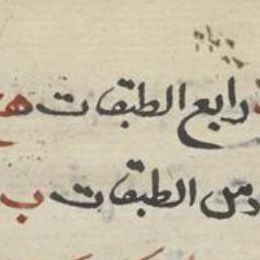 رابع الطبقات
الطبقات ب